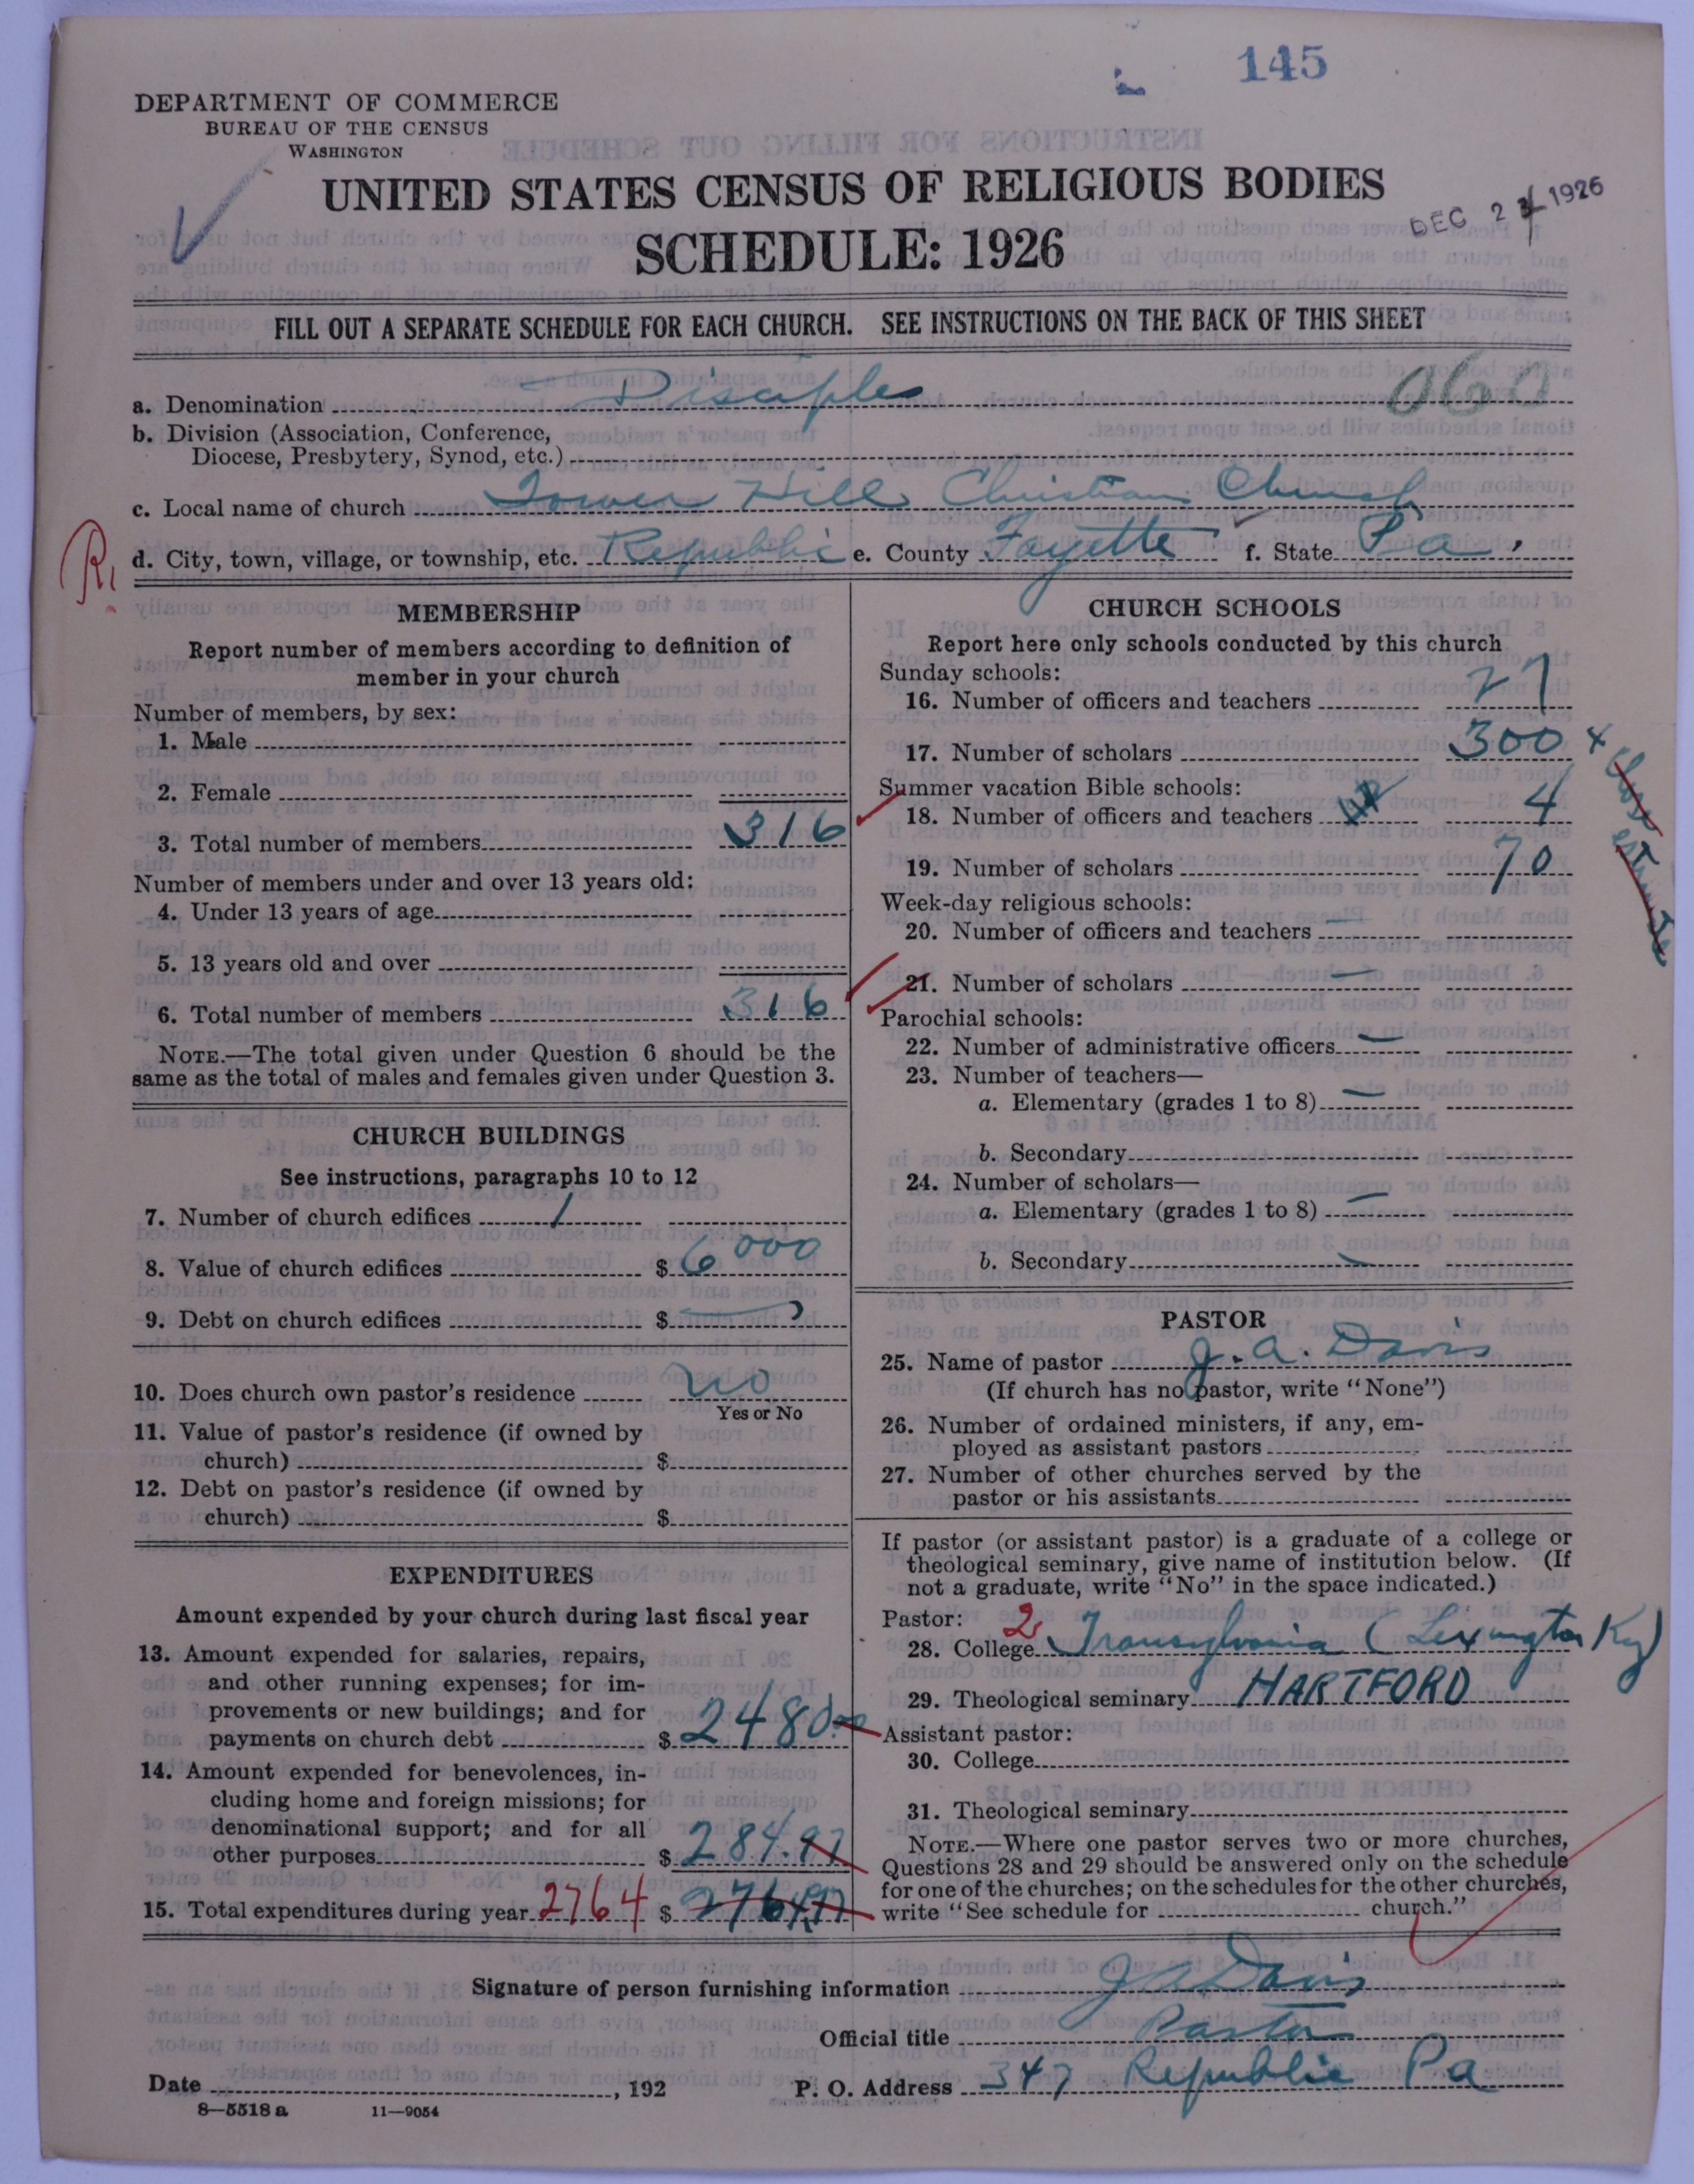 145
DEPARTMENT OF COMMERCE
BUREAU OF THE CENSUS
WASHINGTON
UNITED STATES CENSUS OF RELIGIOUS BODIES
DEC 2 1926
SCHEDULE: 1926
FILL OUT A SEPARATE SCHEDULE FOR EACH CHURCH. SEE INSTRUCTIONS ON THE BACK OF THIS SHEET
a. Denomination Disciples 060
b. Division (Association, Conference,
Diocese, Presbytery, Synod, etc.)
c. Local name of church Tower Hill Christian Church
d. City, town, village, or township, etc. Republic e. County Fayette f. State Pa.
MEMBERSHIP
Report number of members according to definition of
member in your church
Number of members, by sex:
1. Male
2. Female
3. Total number of members 316
Number of members under and over 13 years old:
4. Under 13 years of age
5. 13 years old and over
6. Total number of members 316
NOTE.—The total given under Question 6 should be the
same as the total of males and females given under Question 3.
CHURCH BUILDINGS
See instructions, paragraphs 10 to 12
7. Number of church edifices 1
8. Value of church edifices $ 6000
9. Debt on church edifices $ —
10. Does church own pastor's residence no
Yes or No
11. Value of pastor's residence (if owned by
church) $
12. Debt on pastor's residence (if owned by
church) $
EXPENDITURES
Amount expended by your church during last fiscal year
13. Amount expended for salaries, repairs,
and other running expenses; for im-
provements or new buildings; and for
payments on church debt $ 2480.00
14. Amount expended for benevolences, in-
cluding home and foreign missions; for
denominational support; and for all
other purposes $ 284.97
15. Total expenditures during year 2764 $ 2764.97
CHURCH SCHOOLS
Report here only schools conducted by this church
Sunday schools:
16. Number of officers and teachers 27
17. Number of scholars 300 x
close estimate
Summer vacation Bible schools:
18. Number of officers and teachers 4
19. Number of scholars 70
Week-day religious schools:
20. Number of officers and teachers —
21. Number of scholars —
Parochial schools:
22. Number of administrative officers —
23. Number of teachers—
a. Elementary (grades 1 to 8) —
b. Secondary
24. Number of scholars—
a. Elementary (grades 1 to 8) —
b. Secondary —
PASTOR
25. Name of pastor J. A. Davis
(If church has no pastor, write "None")
26. Number of ordained ministers, if any, em-
ployed as assistant pastors
27. Number of other churches served by the
pastor or his assistants
If pastor (or assistant pastor) is a graduate of a college or
theological seminary, give name of institution below. (If
not a graduate, write "No" in the space indicated.)
Pastor: 2
28. College Transylvania (Lexington Ky)
29. Theological seminary HARTFORD
Assistant pastor:
30. College
31. Theological seminary
NOTE.—Where one pastor serves two or more churches,
Questions 28 and 29 should be answered only on the schedule
for one of the churches; on the schedules for the other churches,
write "See schedule for church."
Signature of person furnishing information J A Davis
Official title Pastor
Date , 192 P. O. Address 347 Republic Pa
8—5518 a 11—9054